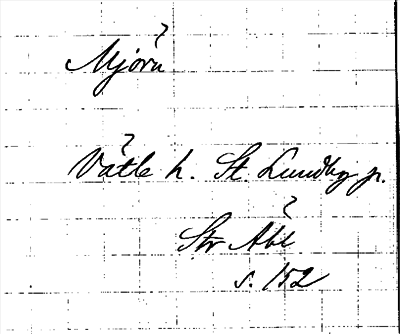 Mjörn
Vätle h. St. Lundby p.
Str
s. 152